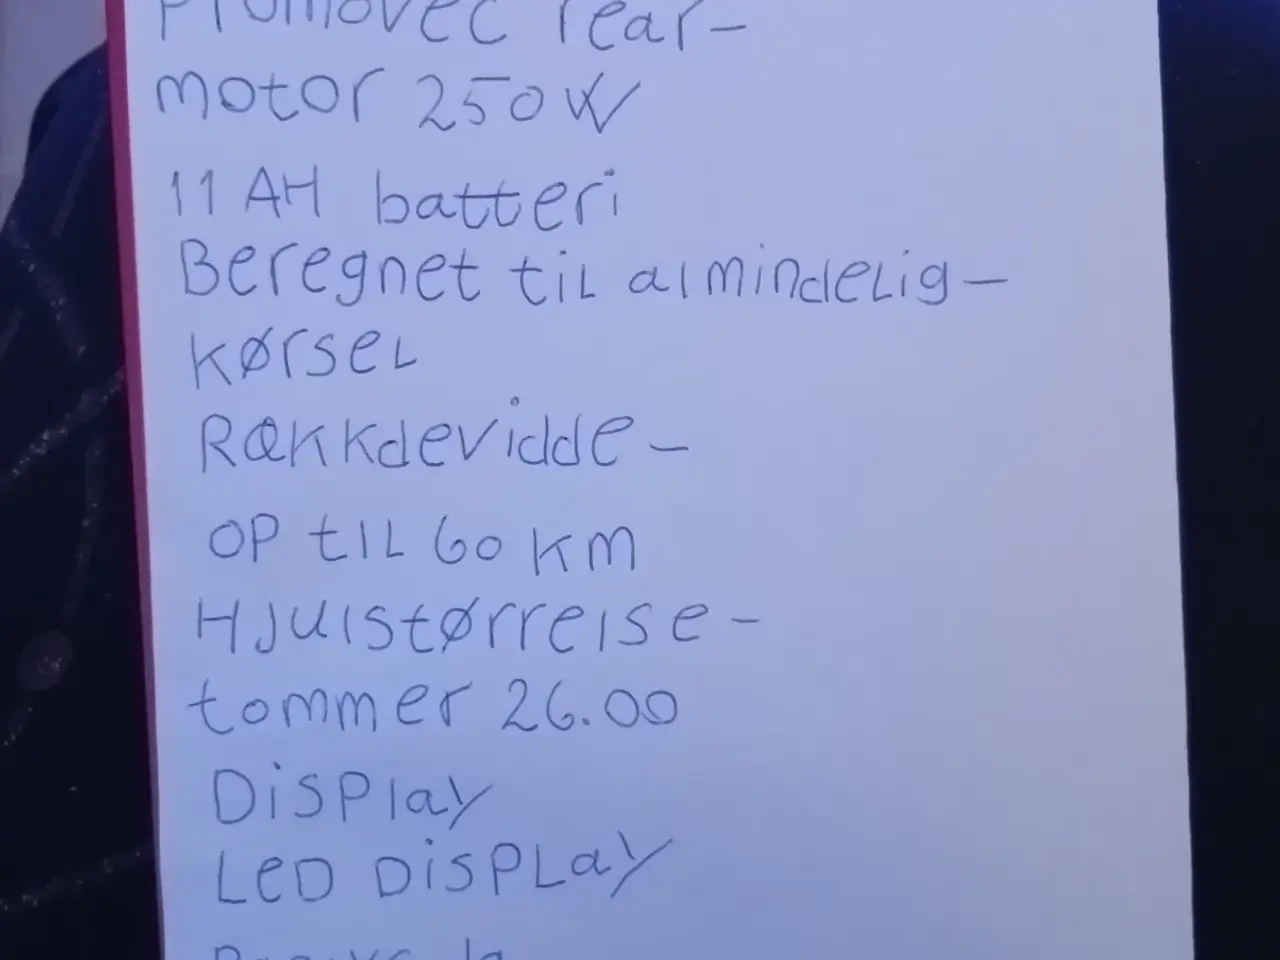 Promovec rear-
motor 250W
11 AH batteri
Beregnet til almindelig-
kørsel
Rækkdevidde-
op til 60 km
Hjulstørrelse-
tommer 26.00
Display
LED DISPLAY